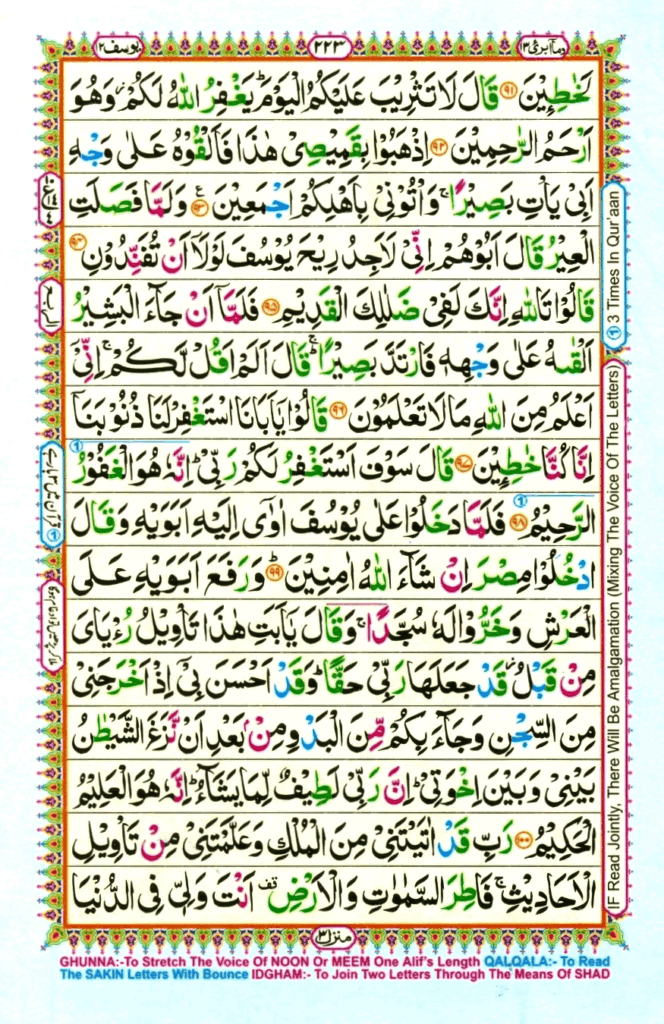 یوسف ۱۲
۲۲۳
وما ابرئ ۱۳
لَخٰطِـِٕیْنَ ﴿۹۱﴾ قَالَ لَا تَثْرِیْبَ عَلَیْكُمُ الْیَوْمَ ؕ یَغْفِرُ اللّٰهُ لَكُمْ ؗ وَهُوَ
اَرْحَمُ الرّٰحِمِیْنَ ﴿۹۲﴾ اِذْهَبُوْا بِقَمِیْصِیْ هٰذَا فَاَلْقُوْهُ عَلٰی وَجْهِ
اَبِیْ یَاْتِ بَصِیْرًا ۚ وَاْتُوْنِیْ بِاَهْلِكُمْ اَجْمَعِیْنَ ﴿۹۳﴾ وَلَمَّا فَصَلَتِ
الْعِیْرُ قَالَ اَبُوْهُمْ اِنِّیْ لَاَجِدُ رِیْحَ یُوْسُفَ لَوْلَاۤ اَنْ تُفَنِّدُوْنِ ﴿۹۴﴾
قَالُوْا تَاللّٰهِ اِنَّكَ لَفِیْ ضَلٰلِكَ الْقَدِیْمِ ﴿۹۵﴾ فَلَمَّاۤ اَنْ جَآءَ الْبَشِیْرُ
اَلْقٰىهُ عَلٰی وَجْهِهٖ فَارْتَدَّ بَصِیْرًا ۚ قَالَ اَلَمْ اَقُلْ لَّكُمْ ۚ اِنِّیْۤ
اَعْلَمُ مِنَ اللّٰهِ مَا لَا تَعْلَمُوْنَ ﴿۹۶﴾ قَالُوْا یٰۤاَبَانَا اسْتَغْفِرْ لَنَا ذُنُوْبَنَاۤ
اِنَّا كُنَّا خٰطِـِٕیْنَ ﴿۹۷﴾ قَالَ سَوْفَ اَسْتَغْفِرُ لَكُمْ رَبِّیْ ؕ اِنَّهٗ هُوَ الْغَفُوْرُ
الرَّحِیْمُ ﴿۹۸﴾ فَلَمَّا دَخَلُوْا عَلٰی یُوْسُفَ اٰوٰۤی اِلَیْهِ اَبَوَیْهِ وَقَالَ
ادْخُلُوْا مِصْرَ اِنْ شَآءَ اللّٰهُ اٰمِنِیْنَ ﴿۹۹﴾ وَرَفَعَ اَبَوَیْهِ عَلَی
الْعَرْشِ وَخَرُّوْا لَهٗ سُجَّدًا ۚ وَقَالَ یٰۤاَبَتِ هٰذَا تَاْوِیْلُ رُءْیَایَ
مِنْ قَبْلُ ؗ قَدْ جَعَلَهَا رَبِّیْ حَقًّا ؕ وَقَدْ اَحْسَنَ بِیْۤ اِذْ اَخْرَجَنِیْ
مِنَ السِّجْنِ وَجَآءَ بِكُمْ مِّنَ الْبَدْوِ مِنْۢ بَعْدِ اَنْ نَّزَغَ الشَّیْطٰنُ
بَیْنِیْ وَبَیْنَ اِخْوَتِیْ ؕ اِنَّ رَبِّیْ لَطِیْفٌ لِّمَا یَشَآءُ ؕ اِنَّهٗ هُوَ الْعَلِیْمُ
الْحَكِیْمُ ﴿۱۰۰﴾ رَبِّ قَدْ اٰتَیْتَنِیْ مِنَ الْمُلْكِ وَعَلَّمْتَنِیْ مِنْ تَاْوِیْلِ
الْاَحَادِیْثِ ۚ فَاطِرَ السَّمٰوٰتِ وَالْاَرْضِ ۫ اَنْتَ وَلِیّٖ فِی الدُّنْیَا
① 3 Times In Qur'aan
IF Read Jointly, There Will Be Amalgamation (Mixing The Voice Of The Letters)
منزل ۳
GHUNNA:-To Stretch The Voice Of NOON Or MEEM One Alif's Length QALQALA:- To Read
The SAKIN Letters With Bounce IDGHAM:- To Join Two Letters Through The Means Of SHAD